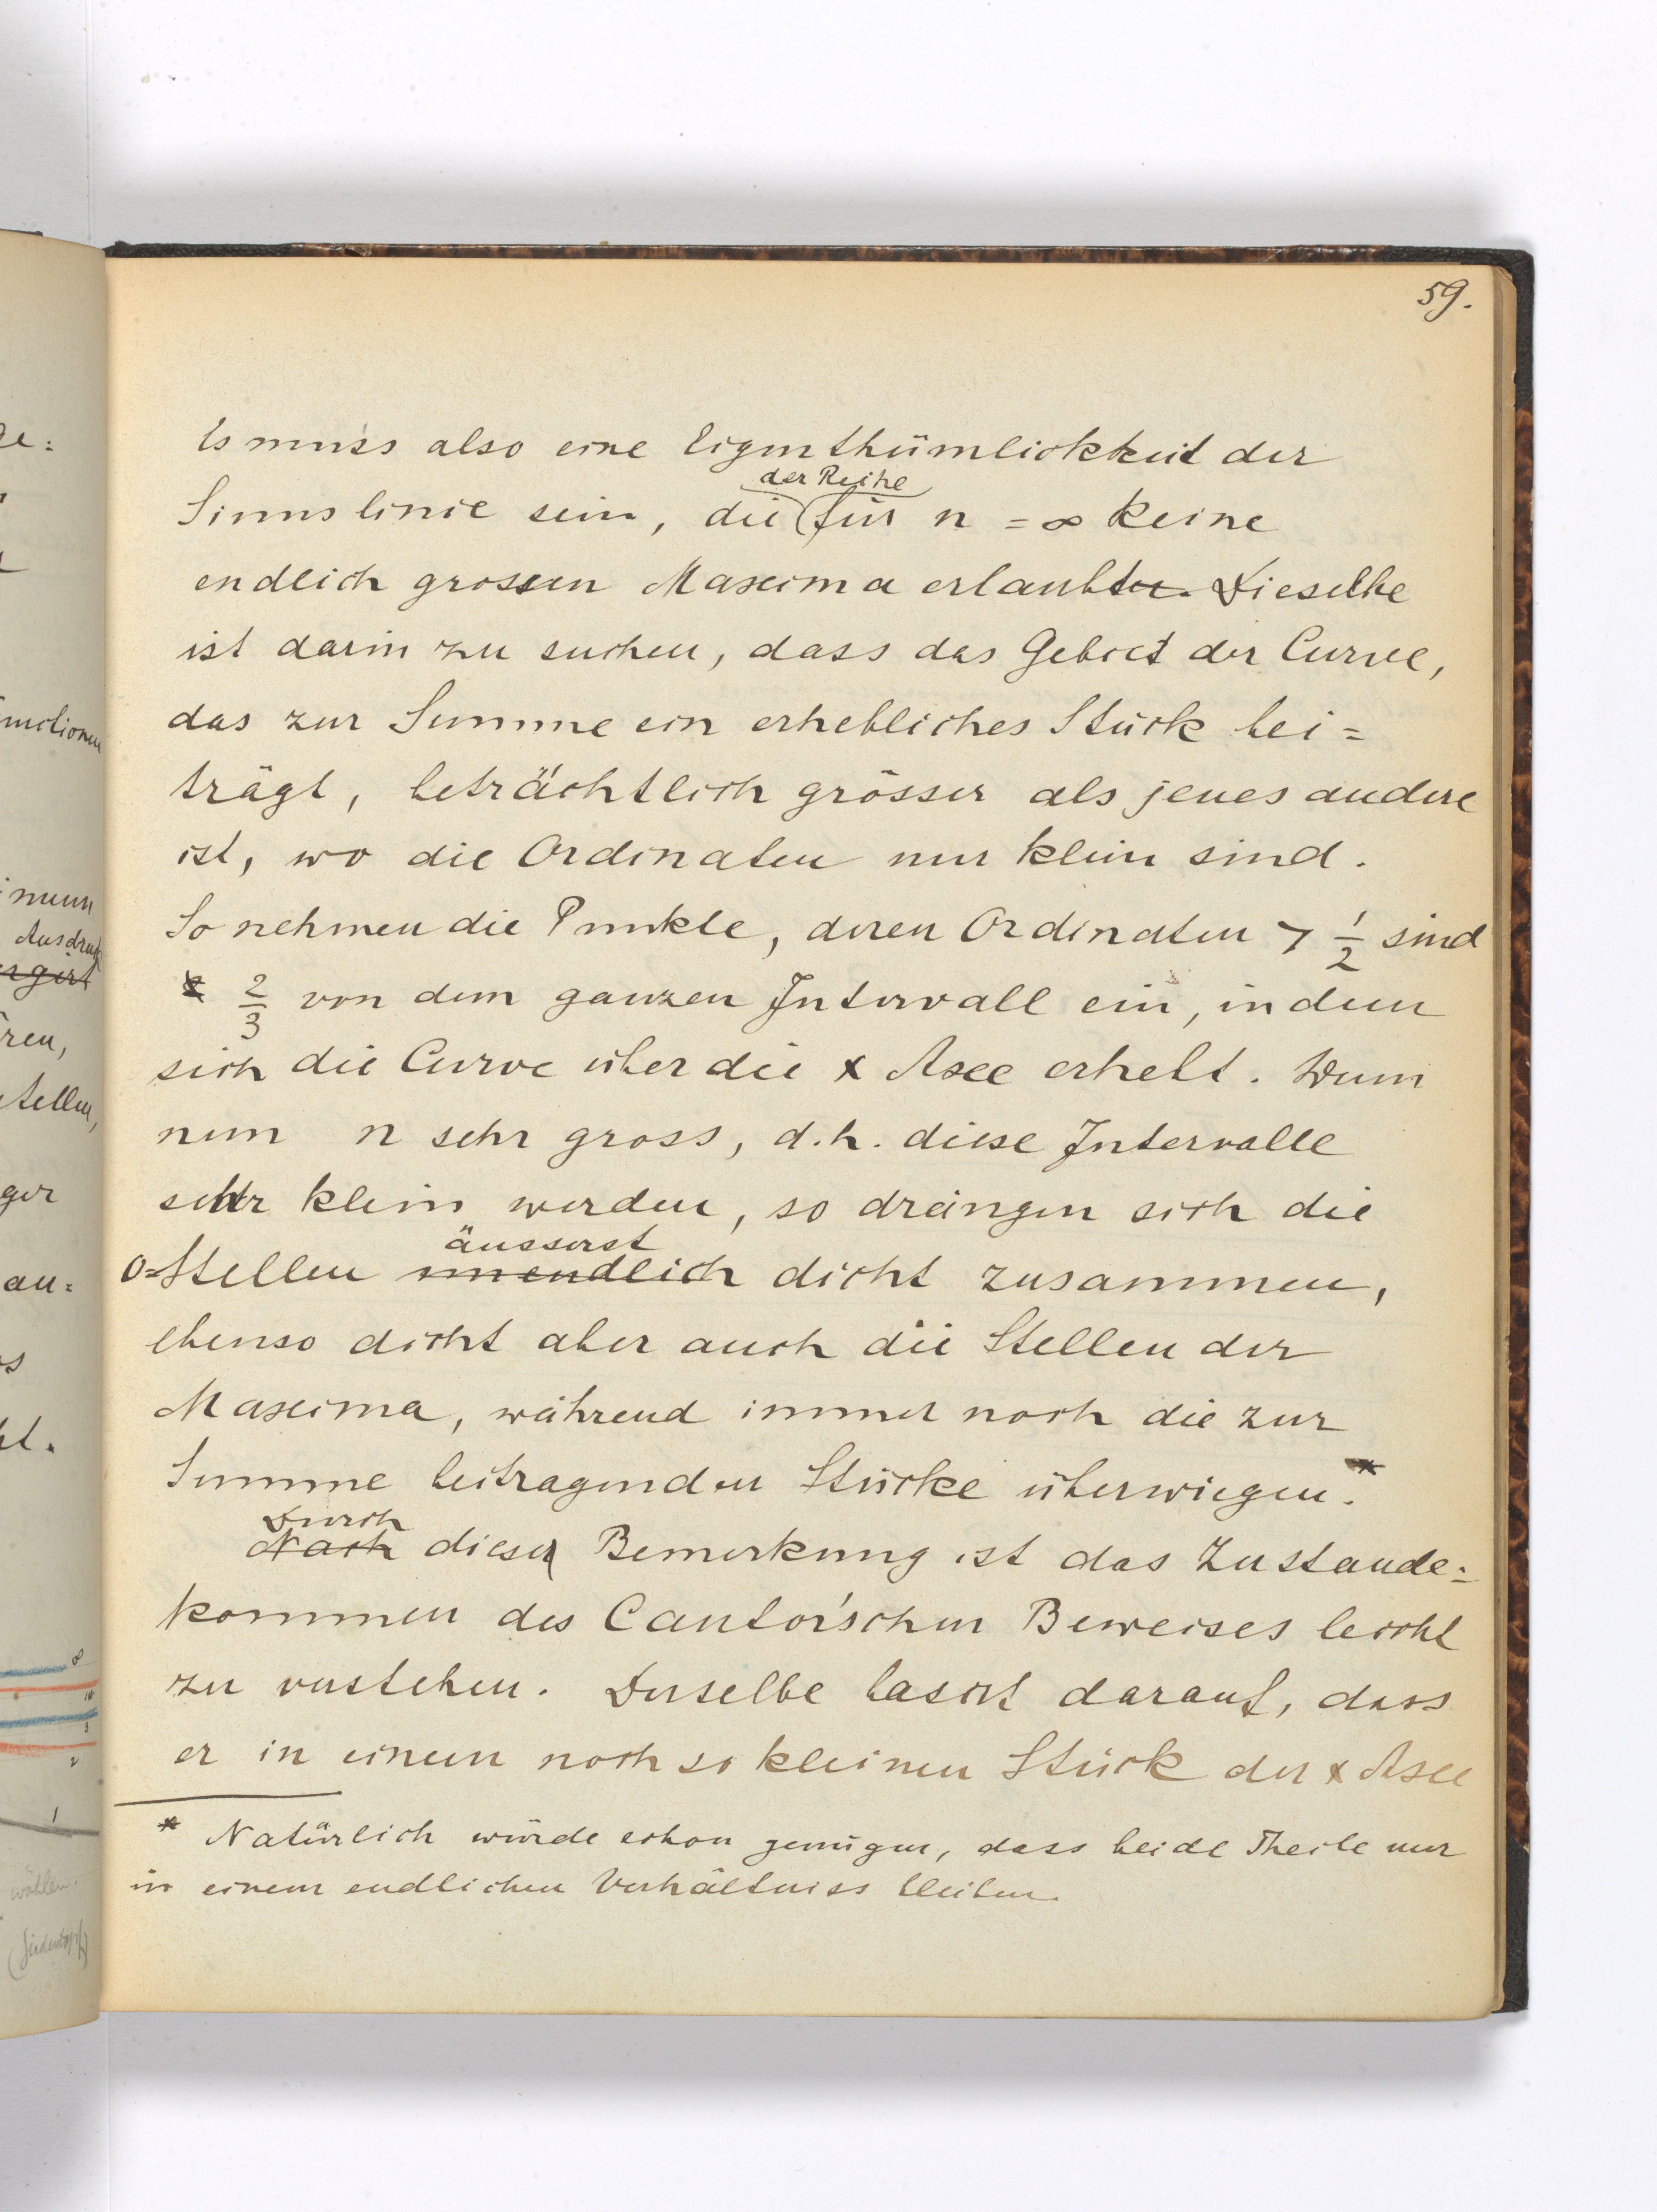 59.
Es muss also eine Eigenthümlichkeit der
der Reihe
Sinuslinie sein, die für n = ∞ keine
endlich grossen Maxima erlaubt. Dieselbe
ist darin zu suchen, dass das Gebiet der Curve,
das zur Summe ein erhebliches Stück bei=
trägt, beträchtlich grösser als jenes andere
ist, wo die Ordinaten nur klein sind.
So nehmen die Punkte, deren Ordinaten > 1/2 sind
2/3 von dem ganzen Intervall ein, in dem
sich die Curve über die x Axe erhebt. Wenn
nun n sehr gross, d.h. diese Intervalle
sehr klein werden, so drängen sich die
äusserst
0=Stellen unendlich dicht zusammen,
ebenso dicht aber auch die Stellen der
Maxima, während immer noch die zur
Summe beitragenden Stücke überwiegen.*
Durch
Nach diese Bemerkung ist das Zustande=
kommen des Cantor'schen Beweises leicht
zu verstehen. Derselbe basirt darauf, dass
er in einem noch so kleinen Stück der x Axe
* Natürlich würde schon genügen, dass beide Theile nur
in einem endlichen Verhältniss bleiben.